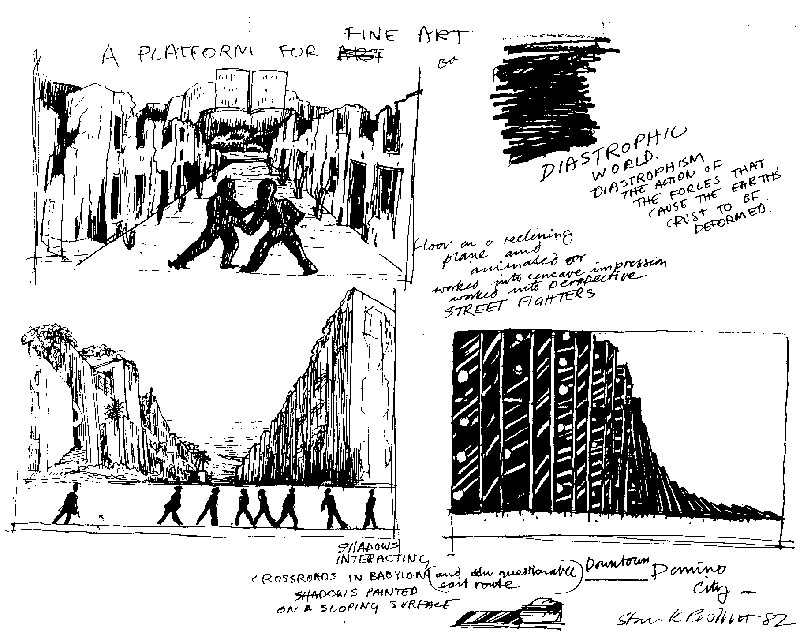 FINE ART
A PLATFORM FOR ART
DIASTROPHIC
WORLD.
DIASTROPHISM
THE ACTION OF
THE FORCES THAT
CAUSE THE EARTHS
CRUST TO BE
DEFORMED.
floor on a reclining
plane and
animated or
worked into concave impression
worked into perspective.
STREET FIGHTERS
SHADOWS
INTERACTING
CROSSROADS IN BABYLON (and questionable)
east route
SHADOWS PAINTED
ON A SLOPING SURFACE
Downtown Domino
City
82